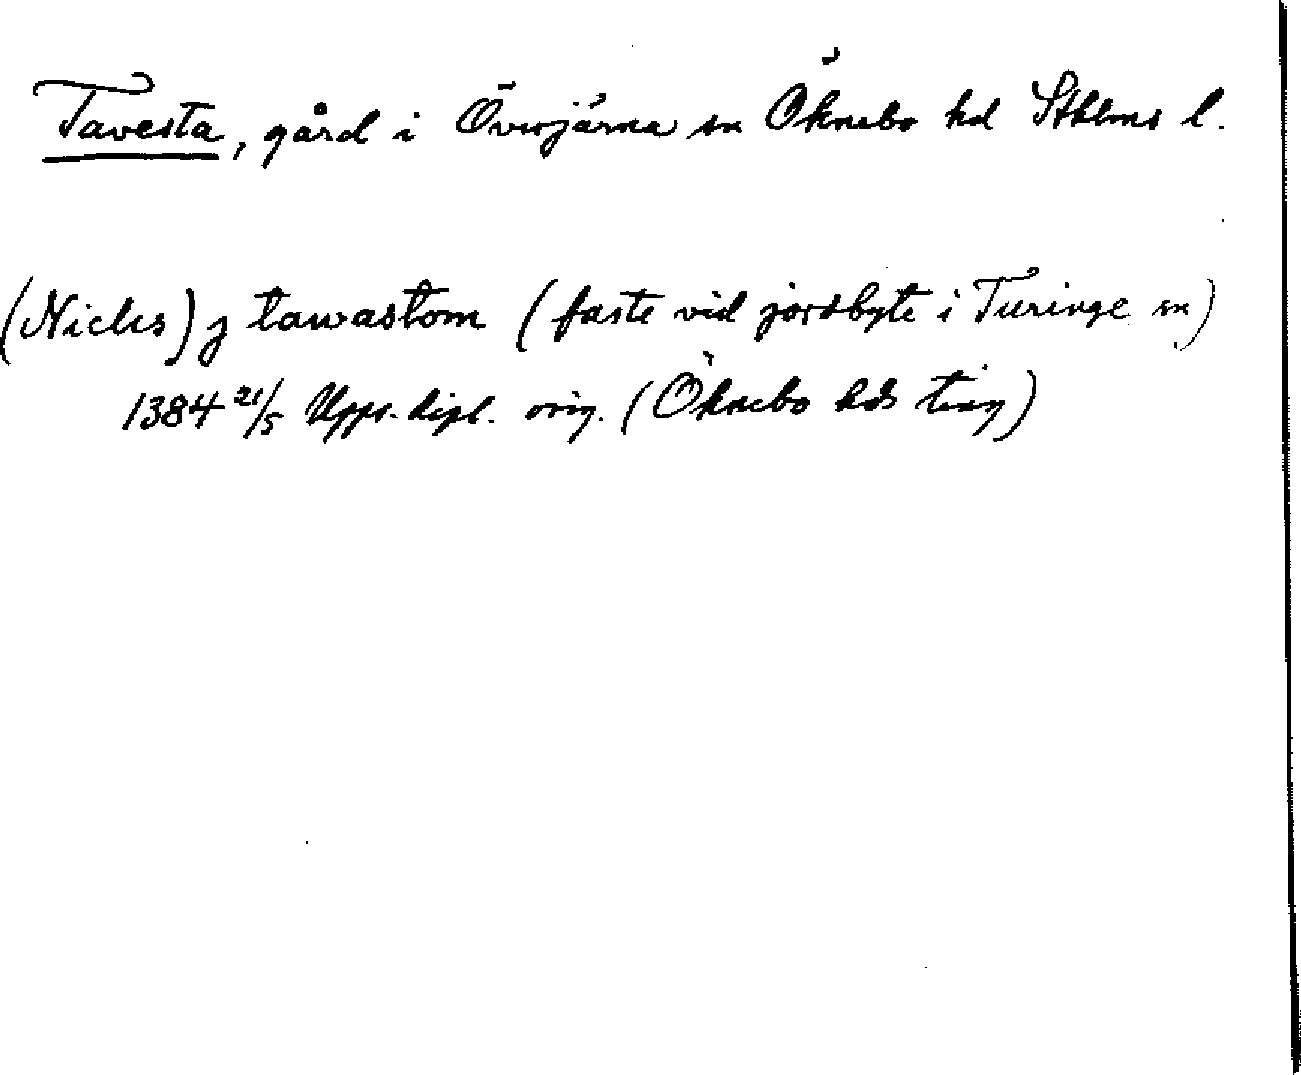 Tavesta, gård i Överjärna sn Öknebo hd Sthlms l.
(Niclis) j tawastom (faste vid jordbyte i Turinge sn)
1384 21/5 Upps. dipl. orig. (Öknebo hds ting)